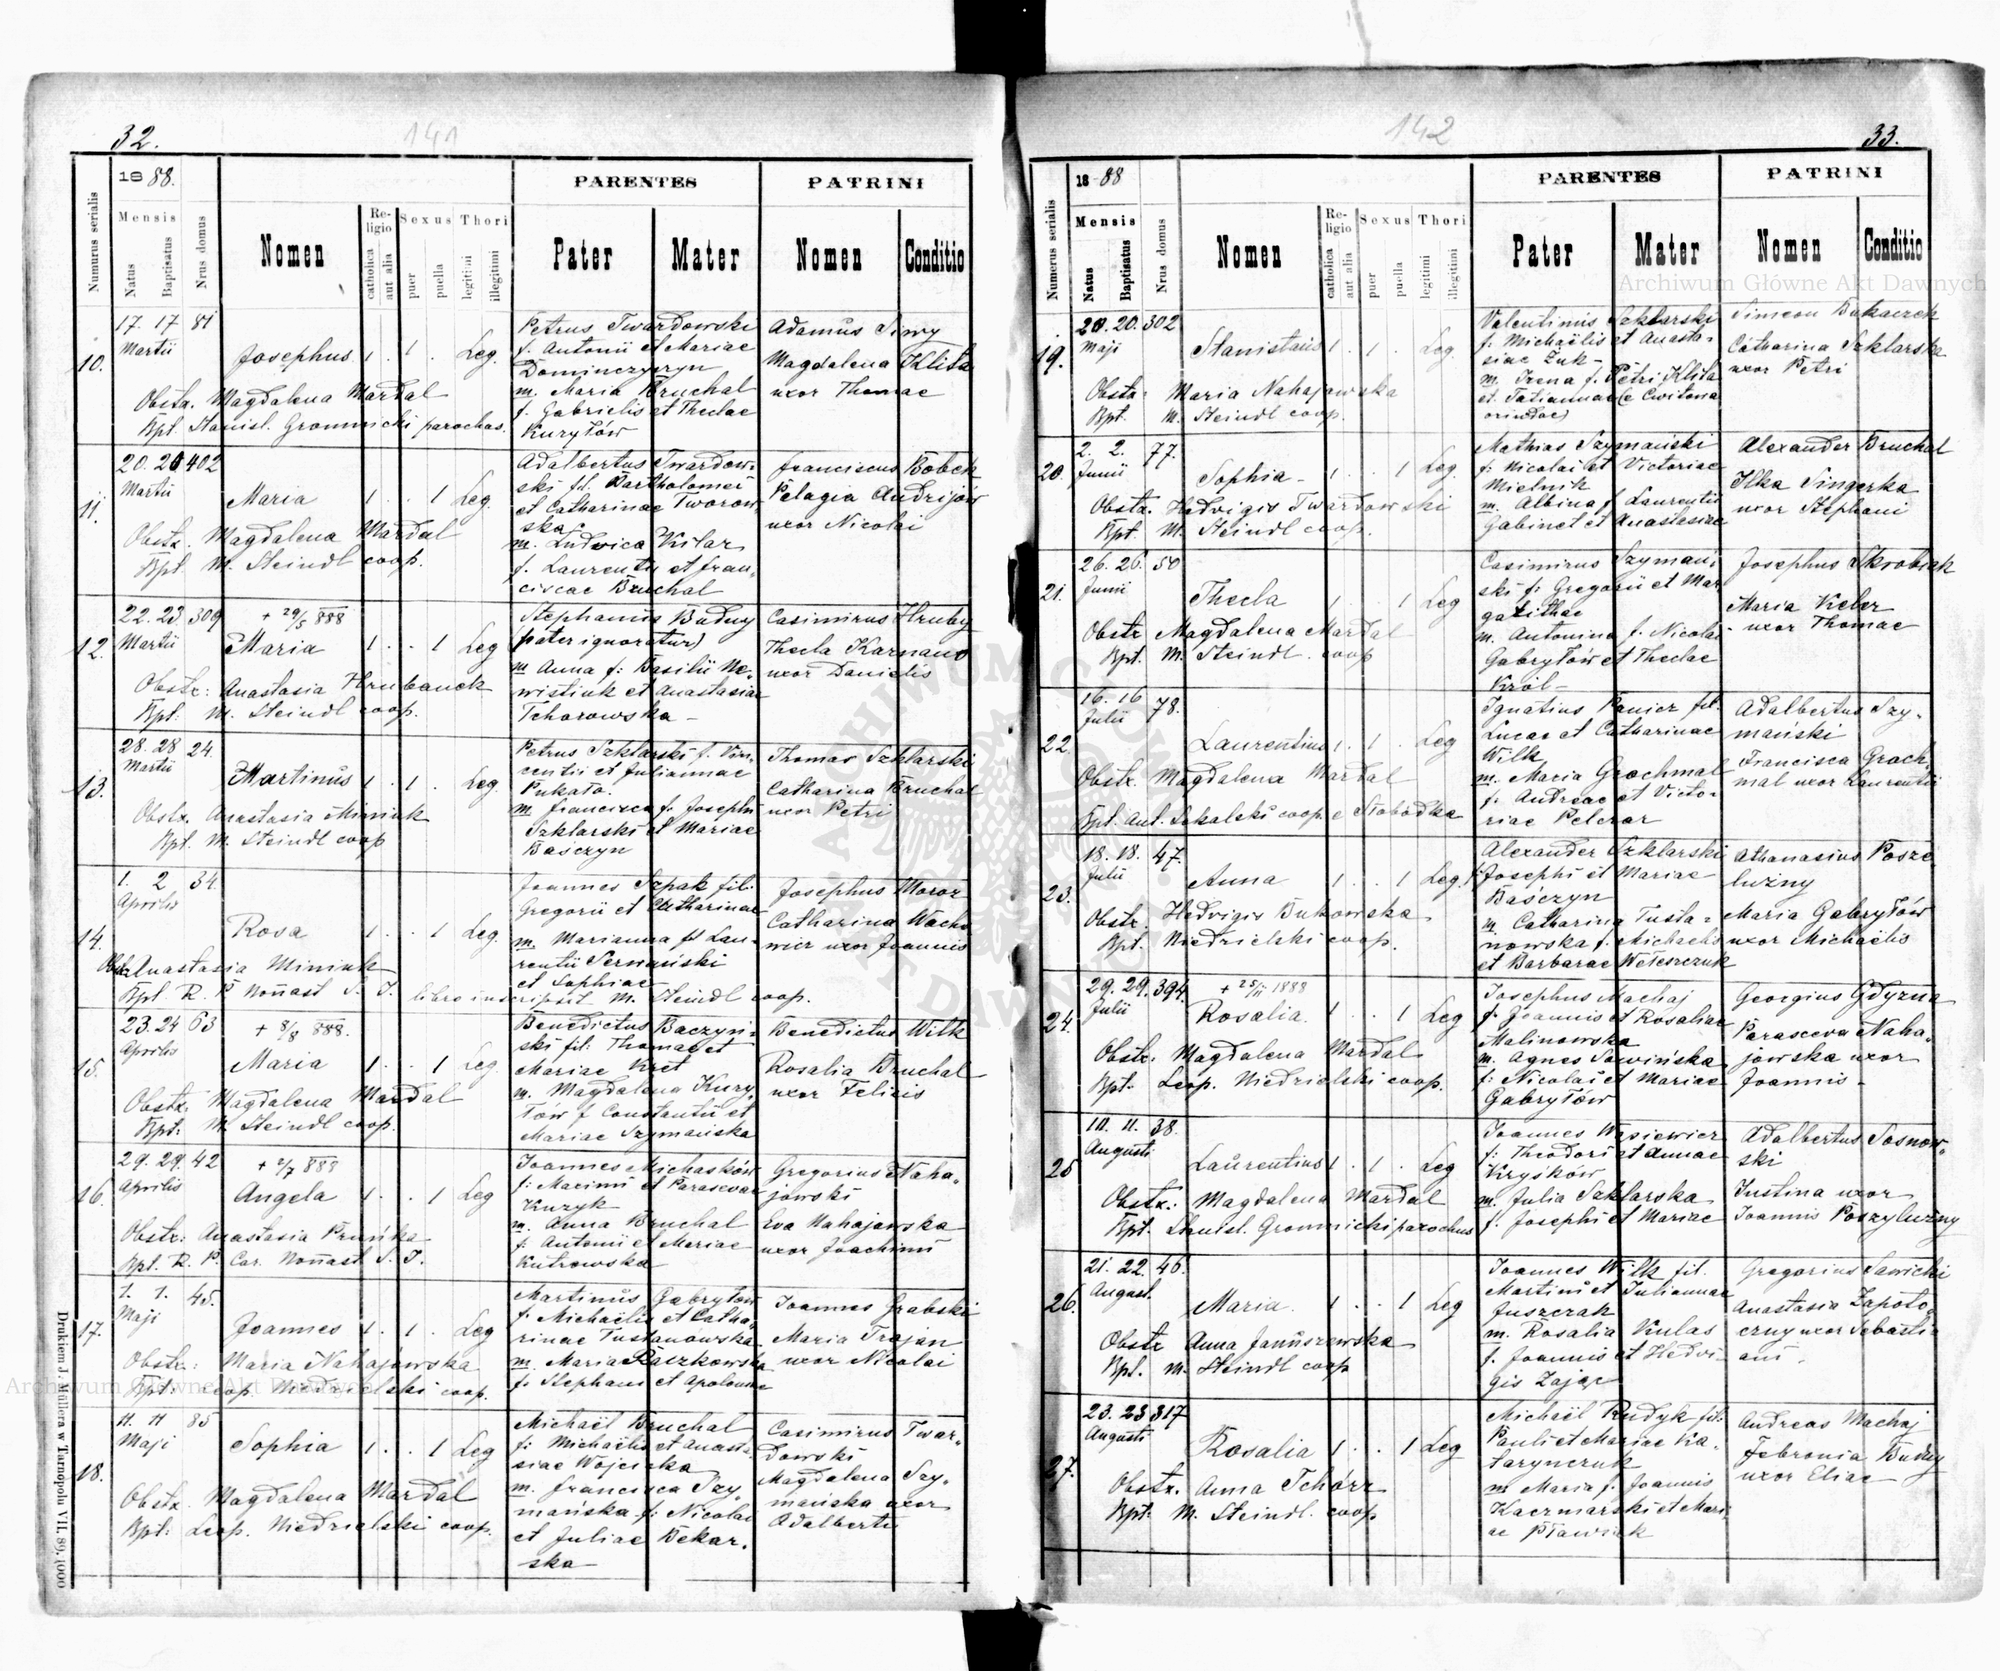 32.
141
1888.
PARENTES
PATRINI
Numerus serialis
Mensis
Natus
Baptisatus
Nrus domus
Nomen
Religio
catholica
aut alia
Sexus
puer
puella
Thori
legitimi
illegitimi
Pater
Mater
Nomen
Conditio
10.
17. 17 81
Martii
Josephus 1 . 1 . Leg.
Obstx. Magdalena Mardal
Bpt. Stanisl. Gromnicki parochus.
Petrus Twardowski
f. Antonii et Mariae
m. Maria Bruchal
f. Gabrielis et Theclae
Kuryłów
Adamus
Magdalena Klita
uxor Thomae
11.
20. 20 402
Martii
Maria 1 . . 1 Leg.
Obstx. Magdalena Mardal
Bpt. M. Steindl coop.
Adalbertus Twardow-
ski fil. Bartholomei
et Catharinae Tworow-
ska
m. Ludovica Kilar
f. Laurentii et Fran-
ciscae Bruchal
Franciscus Bobek
Pelagia Andrijów
uxor Nicolai
12.
22. 23 309
+ 29/5 888
Martii
Maria 1 . . 1 Leg
Obstx: Anastasia Hrubanek
Bpt: M. Steindl coop.
Stephanus Budny
(pater ignoratur)
m Anna f: Basilii Ne-
wistiuk et Anastasiae
Tchorowska -
Casimirus Hruby
Thecla Karnaus
uxor Danielis
13.
28. 28 24.
Martii
Martinus 1 . 1 . Leg.
Obstx. Anastasia Miniuk
Bpt. M. Steindl coop
Petrus Szklarski f. Vin-
centii et Juliannae
Pukało.
m. Francisca f. Josephi
Szklarski et Mariae
Baśczyn
Thomas Szklarski
Catharina Bruchal
uxor Petri
14.
1. 2 34.
Aprilis
Rosa 1 . . 1 Leg.
Obstx. Anastasia Miniuk
Bpt. R. P. Nonnast S. J. libro inscripsit M. Steindl coop.
Joannes Szpak fil.
Gregorii et Catharinae
m. Marianna fil Lau-
rentii Serwański
et Sophiae
Josephus Moroz
Catharina Wacho-
wicz uxor Joannis
15.
23. 24 63
+ 8/8 888.
Aprilis
Maria 1 . . 1 Leg.
Obstx. Magdalena Mardal
Bpt: M. Steindl coop.
Benedictus Baczyń-
ski fil: Thomae et
Mariae Kret
m. Magdalena Kury-
łów f Constantii et
Mariae Szymańska
Benedictus Wilk
Rosalia Bruchal
uxor Felicis
16.
29. 29. 42
+ 2/7 888
Aprilis
Angela 1 . . 1 Leg
Obstx: Anastasia Pruńka
Bpt. R. P. Car. Nonnast S. J.
Joannes Michasków
f: Maximi et Parascevae
Kuzyk
m. Anna Bruchal
f: Antonii et Mariae
Kutrowska
Gregorius Naha-
jowski
Eva Nahajowska
uxor Joachimi
17.
1. 1. 45.
Maji
Joannes 1 . 1 . Leg
Obstx: Maria Nahajowska
Bpt: Leop. Niedzielski coop.
Martinus Gabryłów
f. Michaëlis et Catha-
rinae Tustanowska
m. Maria Raczkowska
f. Stephani et Apoloniae
Joannes Grabski
Maria Trajan
uxor Nicolai
18.
11. 11 85
Maji
Sophia 1 . . 1 Leg
Obstx. Magdalena Mardal
Bpt: Leop. Niedzielski coop.
Michaël Bruchal
f: Michaëlis et Anasta-
siae Wojcicka
m. Francisca Szy-
mańska f: Nicolai
et Juliae Bekar-
ska
Casimirus Twar-
dowski
Magdalena Szy-
mańska uxor
Adalberti
Drukiem J. Müllera w Tarnopolu VII. 89. 1000
33.
142
1888
PARENTES
PATRINI
Numerus serialis
Mensis
Natus
Baptisatus
Nrus domus
Nomen
Religio
catholica
aut alia
Sexus
puer
puella
Thori
legitimi
illegitimi
Pater
Mater
Nomen
Conditio
Archiwum Główne Akt Dawnych
19.
20. 20. 302
Maji
Stanislaus 1 . 1 . Leg.
Obstx: Maria Nahajowska
Bpt. M. Steindl coop.
Valentinus Szklarski
f: Michaëlis et Anasta-
siae Żuk -
m. Irena f. Petri Klita
et Tatiannae (e Cwitowa
oriundae)
Simeon Bukaczek
Catharina Szklarska
uxor Petri
20.
2. 2. 77.
Junii
Sophia - 1 . . 1 Leg
Obstx. Hedvigis Twardowski
Bpt. M. Steindl coop.
Mathias Szymański
f: Nicolai et Victoriae
Mielnik
m. Albina f. Laurentii
Gabinet et Anastasiae
Alexander Bruchal
Ilka Singerka
uxor Stephani
21.
26. 26. 50
Junii
Thecla 1 . . 1 Leg
Obstx Magdalena Mardal
Bpt. M. Steindl. coop
Casimirus Szymań-
ski f: Gregorii et Mar-
garithae
m. Antonina f. Nicolai
Gabryłów et Theclae
Król -
Josephus Skrobiak
Maria Kieler
uxor Thomae
22.
16. 16 78.
Julii
Laurentius 1 . 1 . Leg
Obstx. Magdalena Mardal
Bpt. Ant. Sekalski coop. e Słobódka
Ignatius Panicz fil.
Lucae et Catharinae
Wilk
m. Maria Grochmal
f. Andreae et Victo-
riae Pelczar
Adalbertus Szy-
mański
Francisca Groch-
mal uxor Laurentii
23.
18. 18. 47.
Julii
Anna 1 . . 1 Leg.
Obstx. Hedvigis Bukowska
Bpt. Niedzielski coop.
Alexander Szklarski
f Josephi et Mariae
Baśczyn
m. Catharina Tusta-
nowska f. Michaelis
et Barbarae Weleszczuk
Athanasius Posze-
lużny
Maria Gabryłów
uxor Michaëlis
24.
29. 29. 394.
+ 25/11 1888
Julii
Rosalia. 1 . . 1 Leg
Obstx: Magdalena Mardal
Bpt. Leop. Niedzielski coop.
Josephus Machaj
f. Joannis et Rosaliae
Malinowska
m. Agnes Sawińska
f. Nicolai et Mariae
Gabryłów
Georgius Gdyrzna
Parasceva Naha-
jowska uxor
Joannis -
25
10. 11. 38.
Augusti
Laurentius 1 . 1 . Leg
Obstx.: Magdalena Mardal
Bpt. Stanisl. Gromnicki parochus
Joannes Wąsiewicz
f: Theodori et Annae
Kryśków
m. Julia Szklarska
f. Josephi et Mariae
Adalbertus Sosnow-
ski
Justina uxor
Joannis Poszylużny
26.
21. 22. 46.
August.
Maria. 1 . . 1 Leg
Obstx Anna Januszewska
Bpt. M. Steindl coop
Joannes Wilk fil.
Martini et Juliannae
Juszczak
m. Rosalia Kulas
f. Joannis et Hedvi-
gis Zając
Gregorius Sawicki
Anastasia Zapoto-
czny uxor Sebasti-
ani.
27.
23. 23 317
Augusti
Rosalia 1 . . 1 Leg
Obstx. Anna Tchórz
Bpt: M. Steindl. coop
Michaël Rudyk fil.
Pauli et Mariae Ka-
tarynczuk
m Maria f. Joannis
Kaczmarski et Mari-
ae Pławiuk
Andreas Machaj
Febronia Budny
uxor Eliae
Archiwum Główne Akt Dawnych
ARCHIWUM GŁÓWNE AKT DAWNYCH